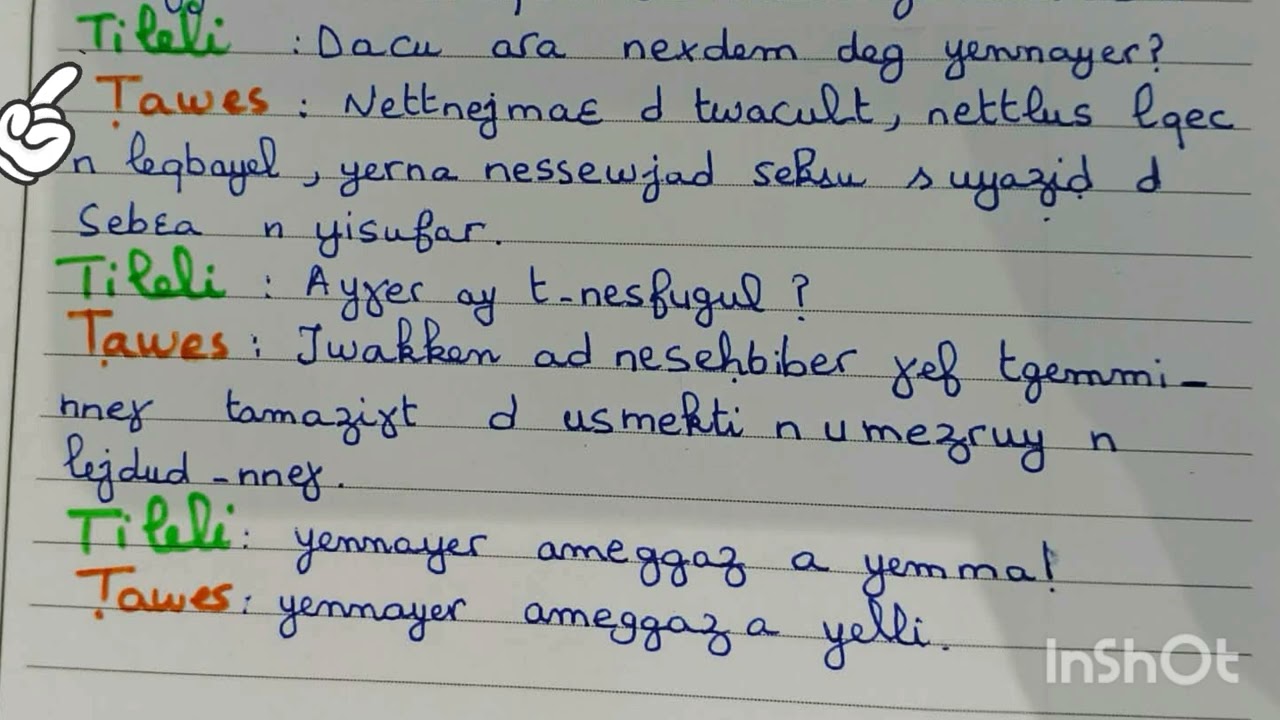 Tileli : Dacu ara nexdem deg yennayer?
Ṭawes : Nettnejmaɛ d twacult, nettlus lqec
n leqbayel, yerna nessewjad seksu s uyaziḍ d
Sebɛa n yisufar.
Tileli : Ayɣer ay t-nesfugul ?
Ṭawes : Iwakken ad neseḥbiber ɣef tgemmi-
nneɣ tamaziɣt d usmekti n umezruy n
lejdud-nneɣ.
Tileli : yennayer ameggaz a yemma!
Ṭawes : yennayer ameggaz a yelli.
InShOt